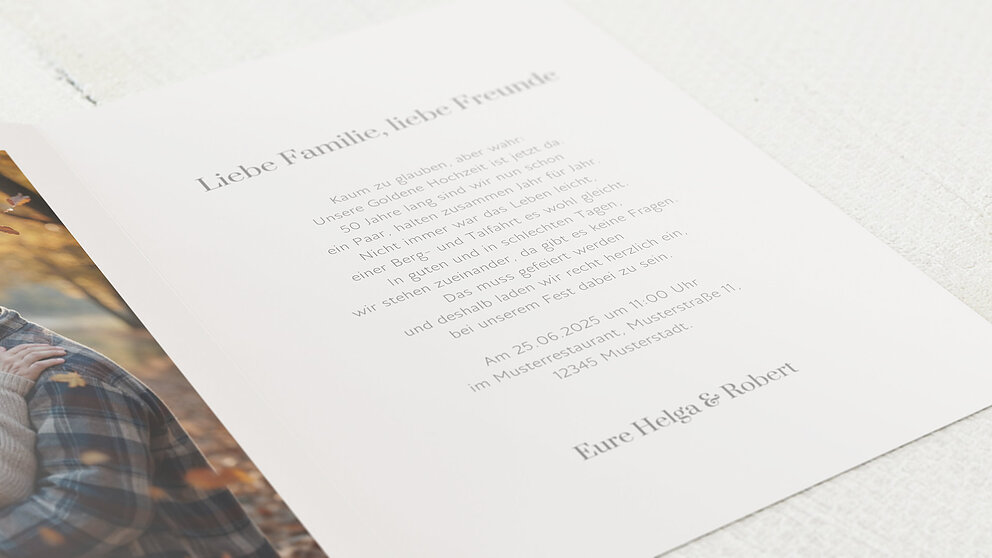 Liebe Familie, liebe Freunde
Kaum zu glauben, aber wahr:
Unsere Goldene Hochzeit ist jetzt da.
50 Jahre lang sind wir nun schon
ein Paar, halten zusammen Jahr für Jahr.
Nicht immer war das Leben leicht,
einer Berg- und Talfahrt es wohl gleicht.
In guten und in schlechten Tagen,
wir stehen zueinander, da gibt es keine Fragen.
Das muss gefeiert werden
und deshalb laden wir recht herzlich ein,
bei unserem Fest dabei zu sein.
Am 25.06.2025 um 11:00 Uhr
im Musterrestaurant, Musterstraße 11,
12345 Musterstadt.
Eure Helga & Robert